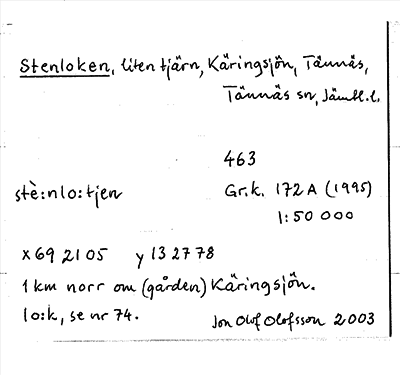 Stenloken, liten tjärn, Käringsjön, Tännäs,
Tännäs sn, Jämtl.l.
463
stè:nlo:tjen
Gr.k. 172 A (1995)
1:50 000
x 69 21 05 y 13 27 78
1 km norr om (gården) Käringsjön.
lo:k, se nr 74.
Jon Olof Olofsson 2003